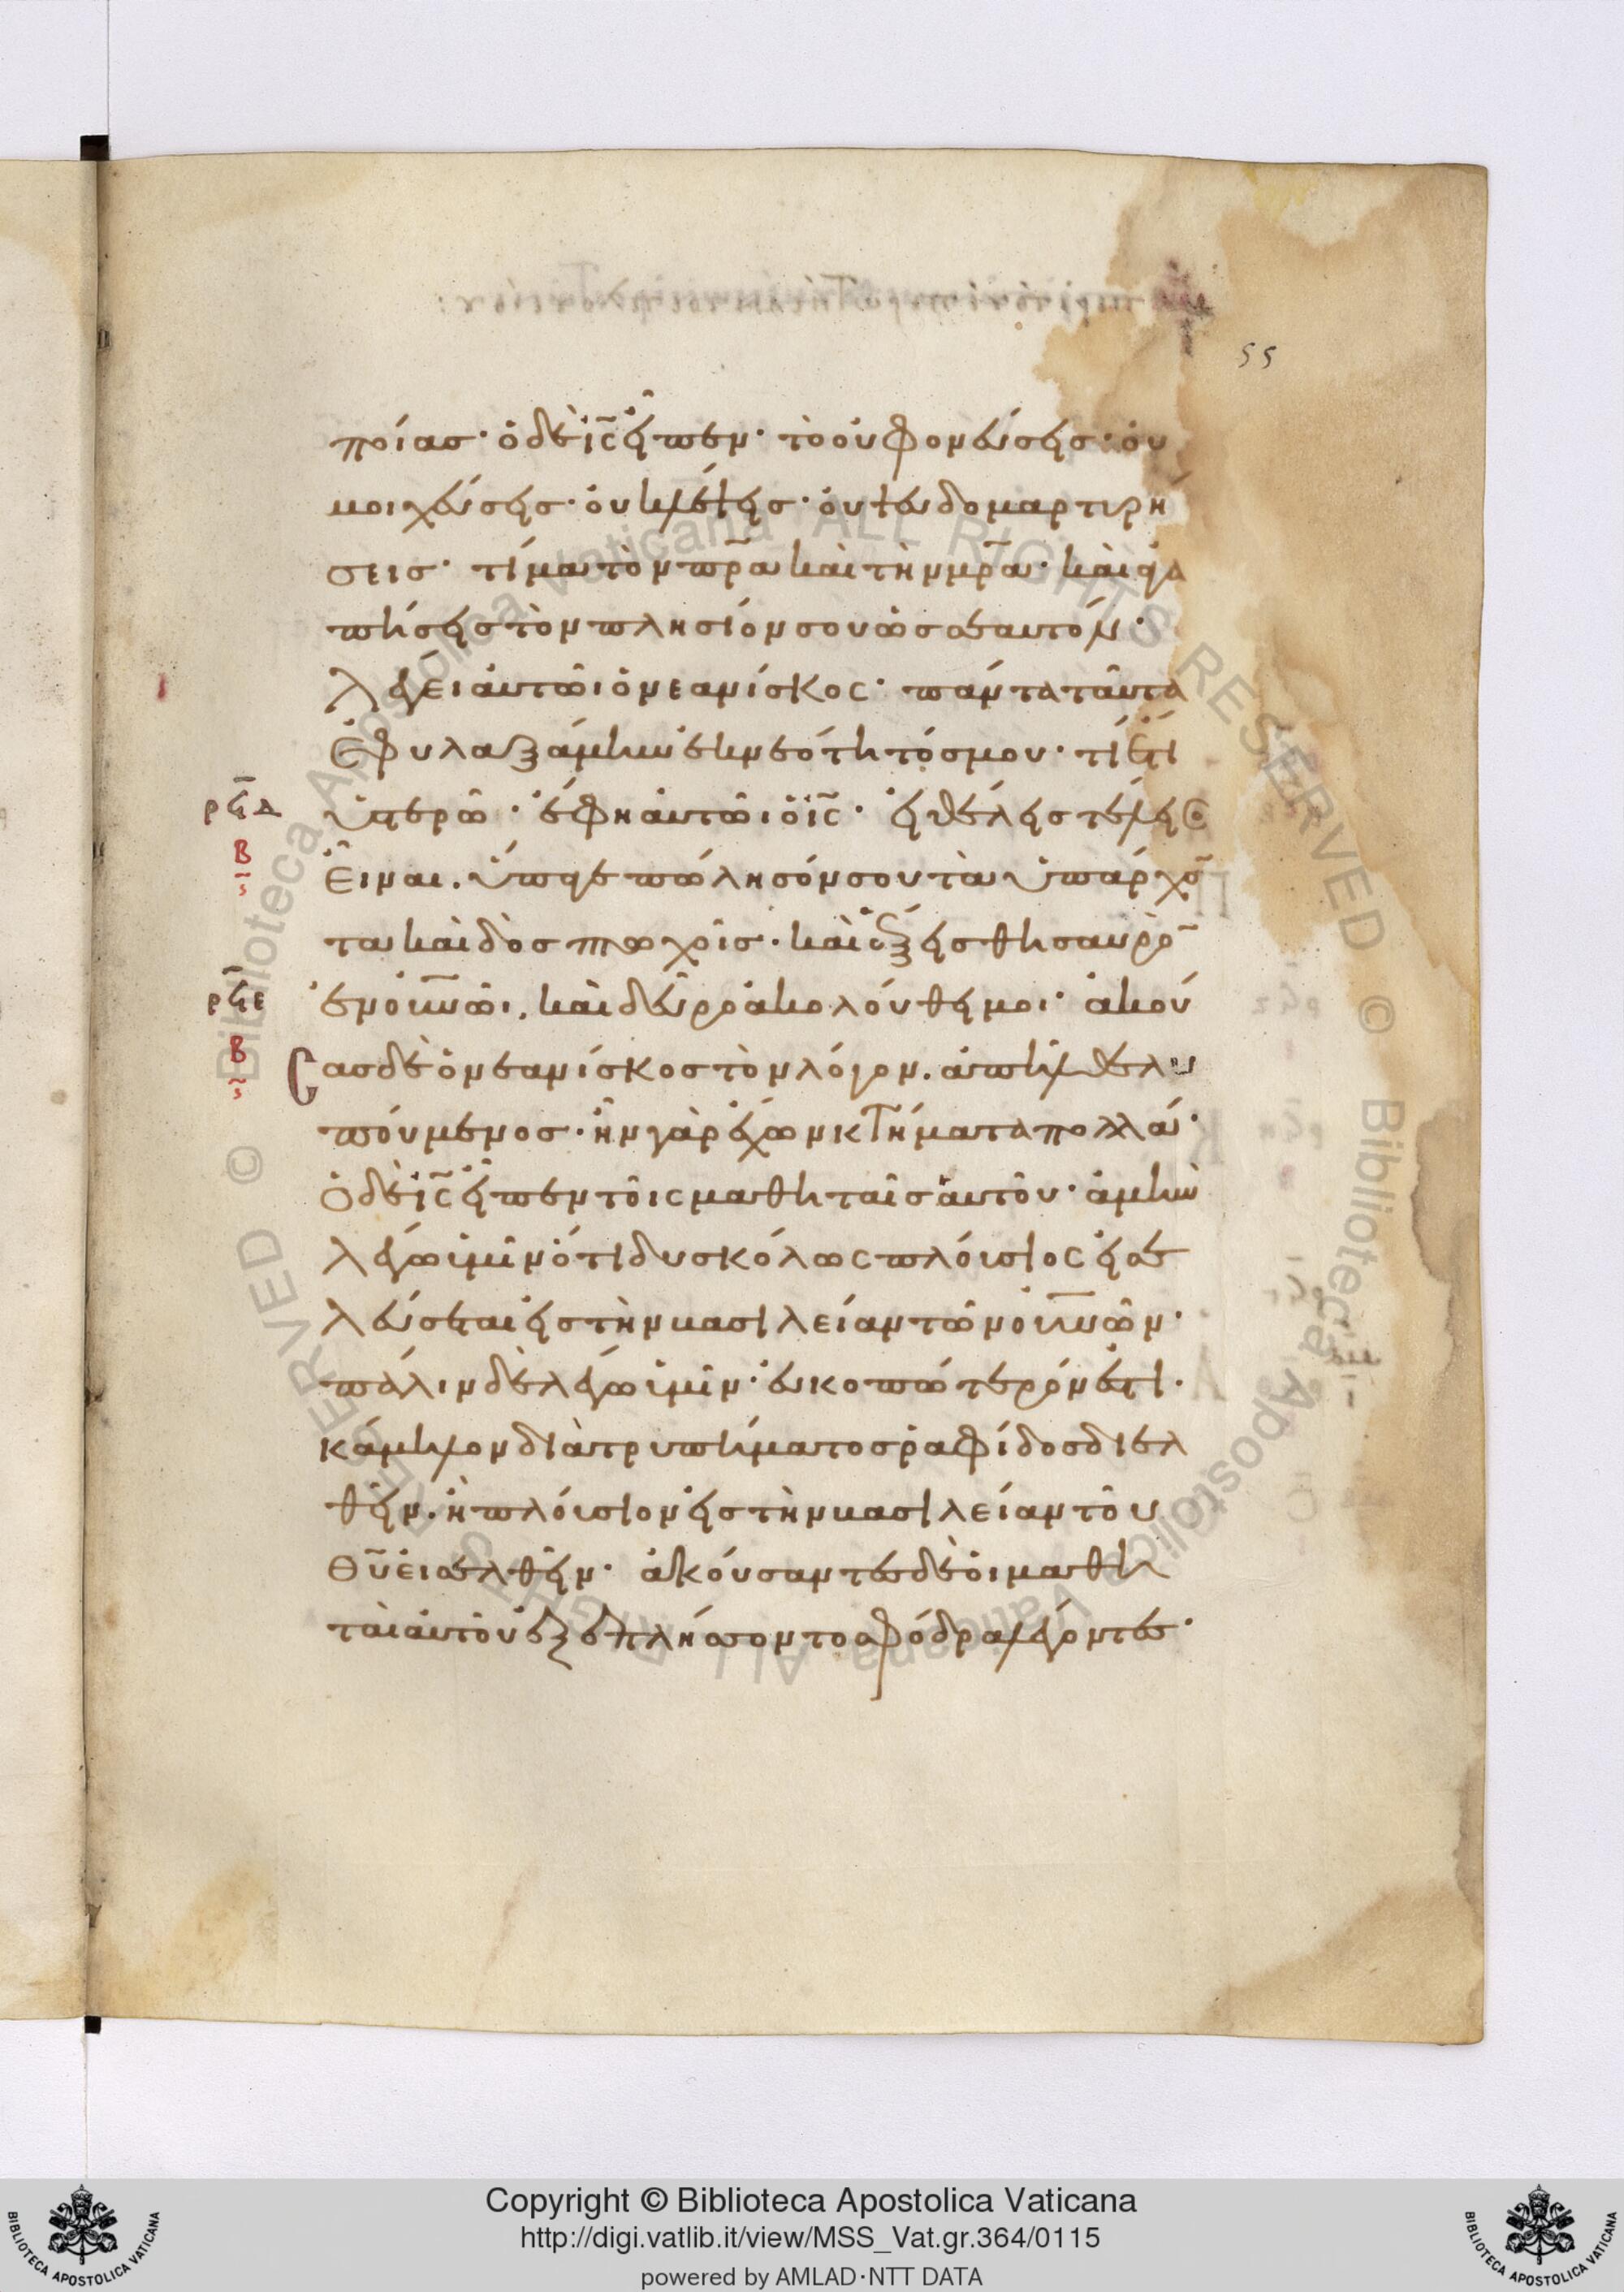 55
ποίας· ὁ δὲ ἰ̅ς̅ εἶπεν· τὸ οὐ φονεύσεις· οὐ
μοιχεύσεις· οὐ κλέψεις· οὐ ψευδομαρτυρή
σεις· τίμα τὸν π̅ρ̅α καὶ τὴν μ̅ρ̅α· καὶ ἀγα
πήσεις τὸν πλησίον σου ὡς σεαυτόν·
λέγει αὐτῶι ὁ νεανίσκος· πάντα ταῦτα
ἐφυλαξάμην ἐκ νεότητός μου· τί ἔτι
ρ̅ϟ̅δ ὑστερῶ· ἔφη αὐτῶι ὁ ἰ̅ς̅· εἰ θέλεις τέλειος
β ϛ εἶναι. ὕπαγε πώλησόν σου τὰ ὑπάρχο̅
τα καὶ δὸς πτωχοῖς· καὶ ἕξεις θησαυρὸ̅
ρ̅ϟ̅ε ἐν ο̅υ̅ν̅ῶι. καὶ δεῦρο ἀκολούθει μοι· ἀκού
β ϛ σας δὲ ὁ νεανίσκος τὸν λόγον. ἀπῆλθε λυ
πούμενος· ἦν γὰρ ἔχων κτήματα πολλά·
ὁ δὲ ἰ̅ς̅ εἶπεν τοῖς μαθηταῖς αὐτοῦ· ἀμὴν
λέγω ὑμῖν ὅτι δυσκόλως πλούσιος εἰσε
λεύσεται εἰς τὴν βασιλείαν τῶν ο̅υ̅ν̅ῶν·
πάλιν δὲ λέγω ὑμῖν· εὐκοπώτερόν ἐστι·
κάμηλον διὰ τρυπήματος ῥαφίδος διελ
θεῖν. ἢ πλούσιον εἰς τὴν βασιλείαν τοῦ
θ̅υ̅ εἰσελθεῖν· ἀκούσαντες δὲ οἱ μαθη
ταὶ αὐτοῦ ἐξεπλήσσοντο σφόδρα λέγοντες·
Copyright © Biblioteca Apostolica Vaticana
http://digi.vatlib.it/view/MSS_Vat.gr.364/0115
powered by AMLAD·NTT DATA
BIBLIOTECA APOSTOLICA VATICANA
BIBLIOTECA APOSTOLICA VATICANA
© Biblioteca Apostolica Vaticana ALL RIGHTS RESERVED © Biblioteca Apostolica Vaticana ALL RIGHTS RESERVED